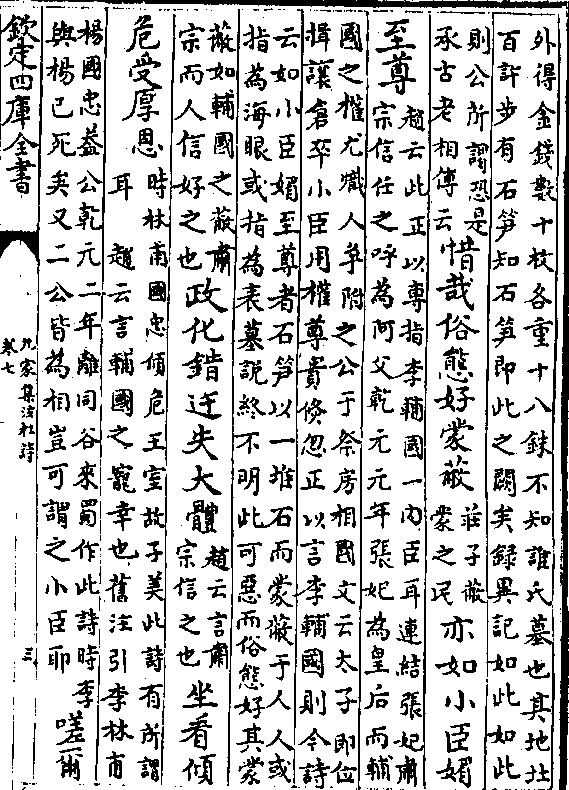 外得金錢數十枚各重十八銖不知誰氏墓也其地北
百許步有石笋知石笋即此之闕矣録異記如此如此
則公所謂恐是
承古老相傳云
惜哉俗態好蒙蔽
莊子蔽
蒙之民
亦如小臣媚
至尊
趙云此正以專指李輔國一内臣耳連結張妃肅
宗信任之呼為阿父乾元元年張妃為皇后而輔
國之權尤熾人爭附之公于祭房相國文云太子即位
揖讓倉卒小臣用權尊貴倏忽正以言李輔國則今詩
云如小臣媚至尊者石笋以一堆石而蒙蔽于人人或
指為海眼或指為表墓説終不明此可惡而俗態好其蒙
蔽如輔國之蔽肅
宗而人信好之也
政化錯迕失大體
趙云言肅
宗信之也
坐看傾
危受厚恩
時林甫國忠傾危王室故子美此詩有所謂
耳 趙云言輔國之寵幸也舊注引李林甫
楊國忠葢公乾元二年離同谷來蜀作此詩時李
與楊已死矣又二公皆為相豈可謂之小臣耶
嗟爾
欽定四庫全書
九家集注杜詩
卷七
三